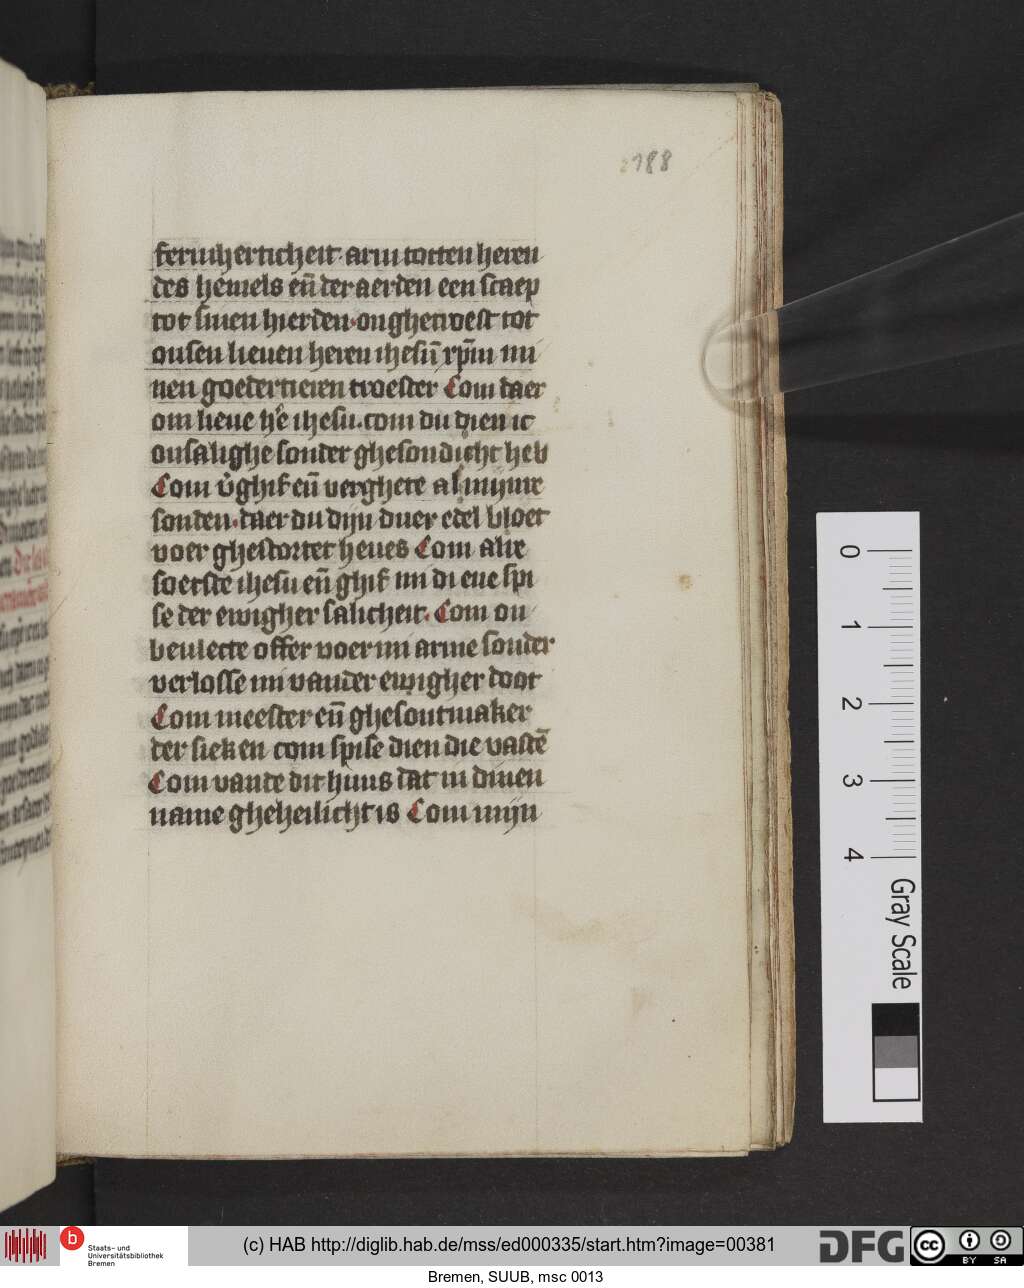 188
fermhertichcit·arm totten heren
des hemels en̄ der aerden een scaep
tot sinen hierden·onghetroest tot
onsen lieuen heren ihesū xp̄m mi
nen goedertieren troester Com daer
om lieue he᷑ ihesu·com du dien ic
onsalighe sonder ghesondicht heb
Com v᷑ghif en̄ verghete al mijnre
sonden·daer du dijn duer edel bloet
voer ghestortet heues Com alre
soetste ihesu en̄ ghif mi di ene spi
se der ewigher salicheit·Com on
beulecte offer voer mi arme sonder
verlosse mi vander ewigher doot
Com meester en̄ ghesontmaker
der sieken com spise dien die vastē
Com vande dit huus dat in dinen
name gheheilicht is Com mijn
0
1
2
3
4
Gray Scale
b Staats- und
Universitätsbibliothek
Bremen
(c) HAB http://diglib.hab.de/mss/ed000335/start.htm?image=00381
DFG
cc BY SA
Bremen, SUUB, msc 0013